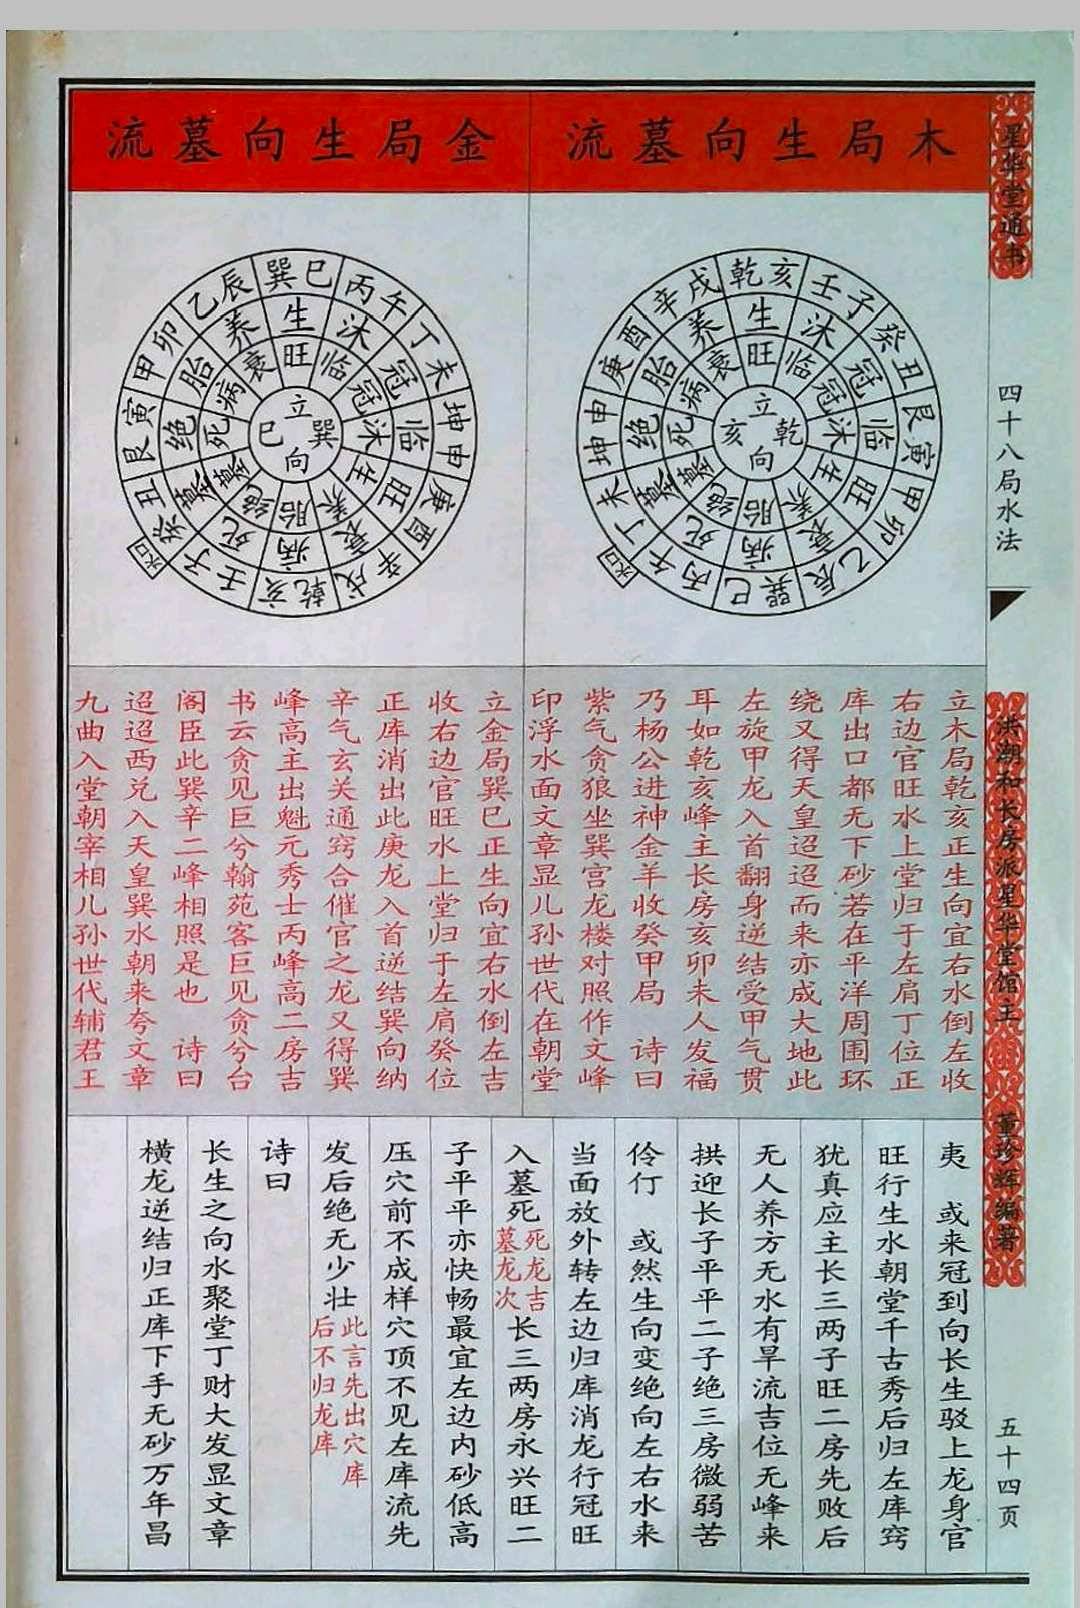 星华堂通书
四十八局水法
洪潮和长房派星华堂馆主
董珍辉编著
五十四页
木局生向墓流
乾亥
壬子
癸丑
艮寅
甲卯
乙辰
巽巳
丙午
丁未
坤申
庚酉
辛戌
生
沐
冠
临
旺
衰
病
死
墓
绝
胎
养
旺
临
冠
沐
生
养
胎
绝
墓
死
病
衰
立
乾
亥
向
水口
金局生向墓流
巽巳
丙午
丁未
坤申
庚酉
辛戌
乾亥
壬子
癸丑
艮寅
甲卯
乙辰
生
沐
冠
临
旺
衰
病
死
墓
绝
胎
养
旺
临
冠
沐
生
养
胎
绝
墓
死
病
衰
立
巽
巳
向
水口
立木局乾亥正生向宜右水倒左收
右边官旺水上堂归于左肩丁位正
库出口都无下砂若在平洋周围环
绕又得天皇迢迢而来亦成大地此
左旋甲龙入首翻身逆结受甲气贯
耳如乾亥峰主长房亥卯未人发福
乃杨公进神金羊收癸甲局 诗曰
紫气贪狼坐巽宫龙楼对照作文峰
印浮水面文章显儿孙世代在朝堂
立金局巽巳正生向宜右水倒左吉
收右边官旺水上堂归于左肩癸位
正库消出此庚龙入首逆结巽向纳
辛气玄关通窍合催官之龙又得巽
峰高主出魁元秀士丙峰高二房吉
书云贪见巨兮翰苑客巨见贪兮台
阁臣此巽辛二峰相照是也 诗曰
迢迢西兑入天皇巽水朝来夸文章
九曲入堂朝宰相儿孙世代辅君王
夷 或来冠到向长生驳上龙身官
旺行生水朝堂千古秀后归左库窍
犹真应主长三两子旺二房先败后
无人养方无水有旱流吉位无峰来
拱迎长子平平二子绝三房微弱苦
伶仃 或然生向变绝向左右水来
当面放外转左边归库消龙行冠旺
入墓死死龙吉墓龙次长三两房永兴旺二
子平平亦快畅最宜左边内砂低高
压穴前不成样穴顶不见左库流先
发后绝无少壮此言先出穴库后不归龙库
诗曰
长生之向水聚堂丁财大发显文章
横龙逆结归正库下手无砂万年昌